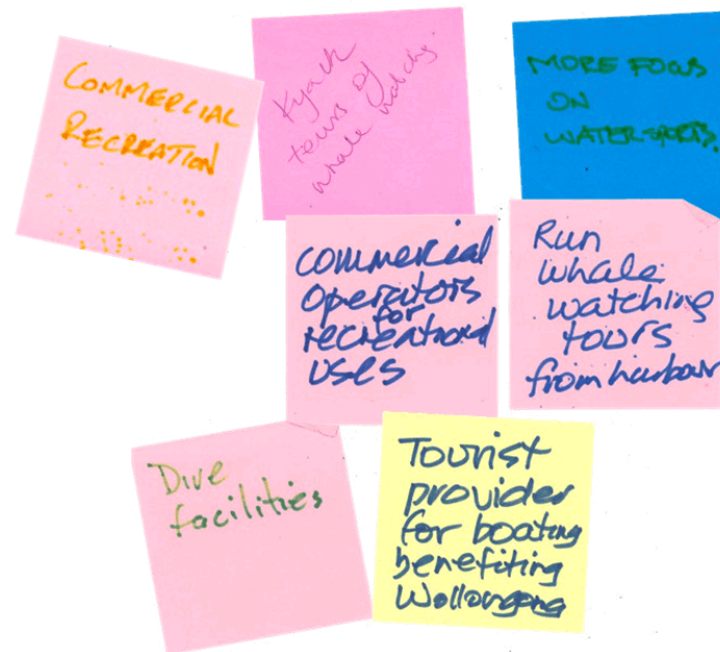 COMMERCIAL
RECREATION
Kyack
tours of
whale watchg.
MORE FOCUS
ON
WATER SPORTS.
commercial
Operators
for
recreational
uses
Run
whale
watching
tours
from harbour
Dive
facilities
Tourist
provider
for boating
benefiting
Wollongong